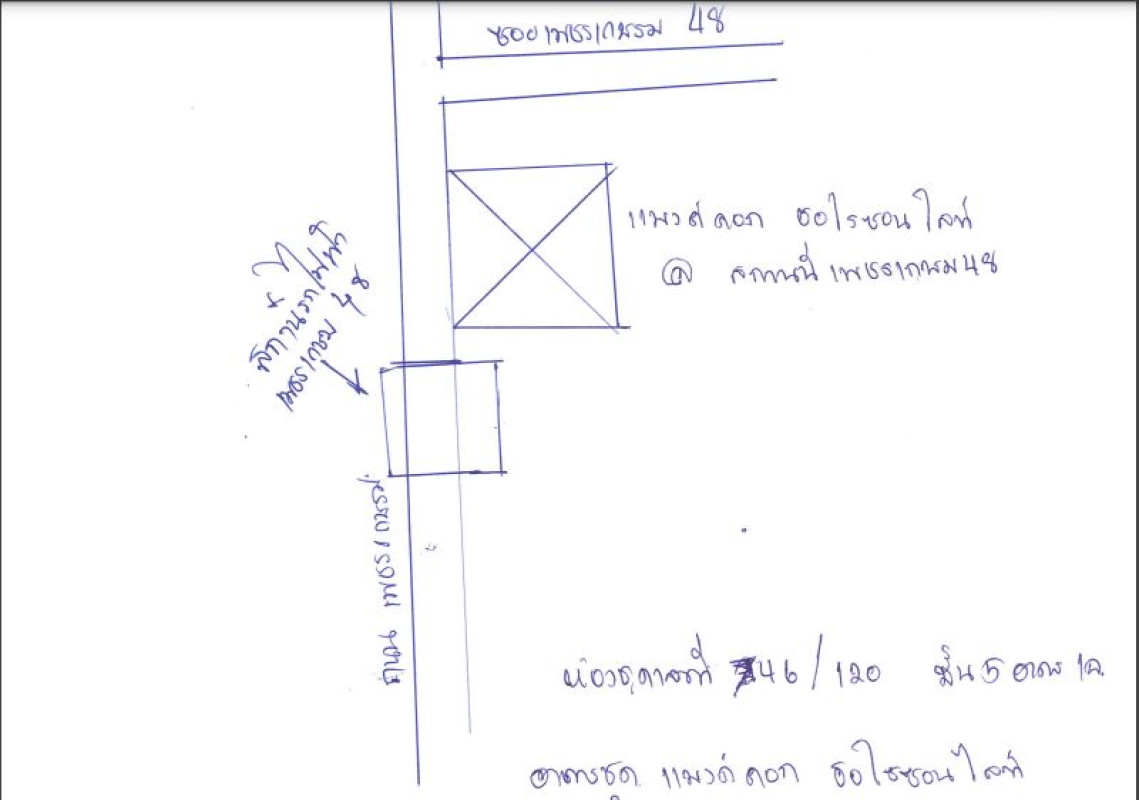 ซอยเพชรเกษม 48
แบงค์คอก ฮอไรซอน ไลท์
@ สถานีเพชรเกษม 48
สถานีรถไฟฟ้า
เพชรเกษม 48
ถนน เพชรเกษม
ห้องชุดเลขที่ 46/120 ชั้น 5 อาคาร
อาคารชุด แบงค์คอก ฮอไรซอน ไลท์